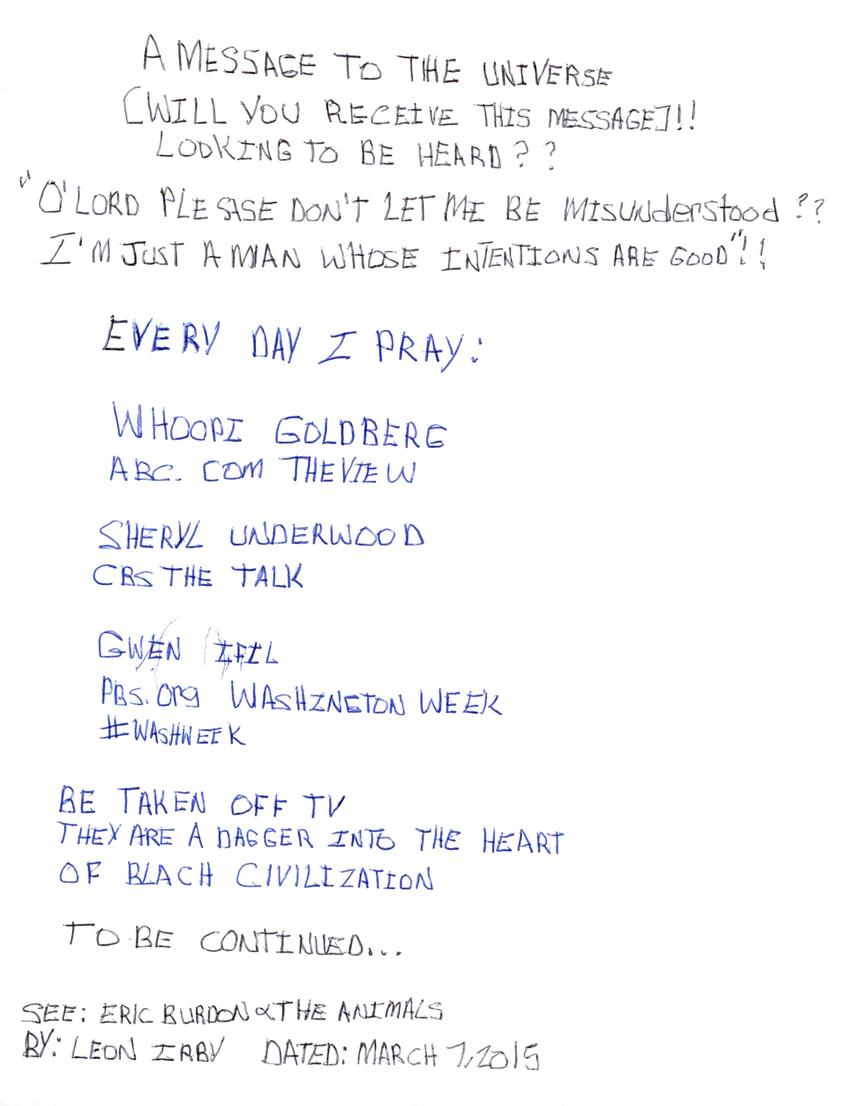 A MESSAGE TO THE UNIVERSE
[WILL YOU RECEIVE THIS MESSAGE]!!
LOOKING TO BE HEARD??
"O'LORD PLEASE DON'T LET ME BE MISUNDERSTOOD ??
I'M JUST A MAN WHOSE INTENTIONS ARE GOOD"!!
EVERY DAY I PRAY:
WHOOPI GOLDBERG
ABC.COM THE VIEW
SHERYL UNDERWOOD
CBS THE TALK
GWEN IFIL
PBS.Org WASHINGTON WEEK
#WASHWEEK
BE TAKEN OFF TV
THEY ARE A DAGGER INTO THE HEART
OF BLACH CIVILIZATION
TO BE CONTINUED...
SEE: ERIC BURDON & THE ANIMALS
BY: LEON IRBY DATED: MARCH 7, 2015